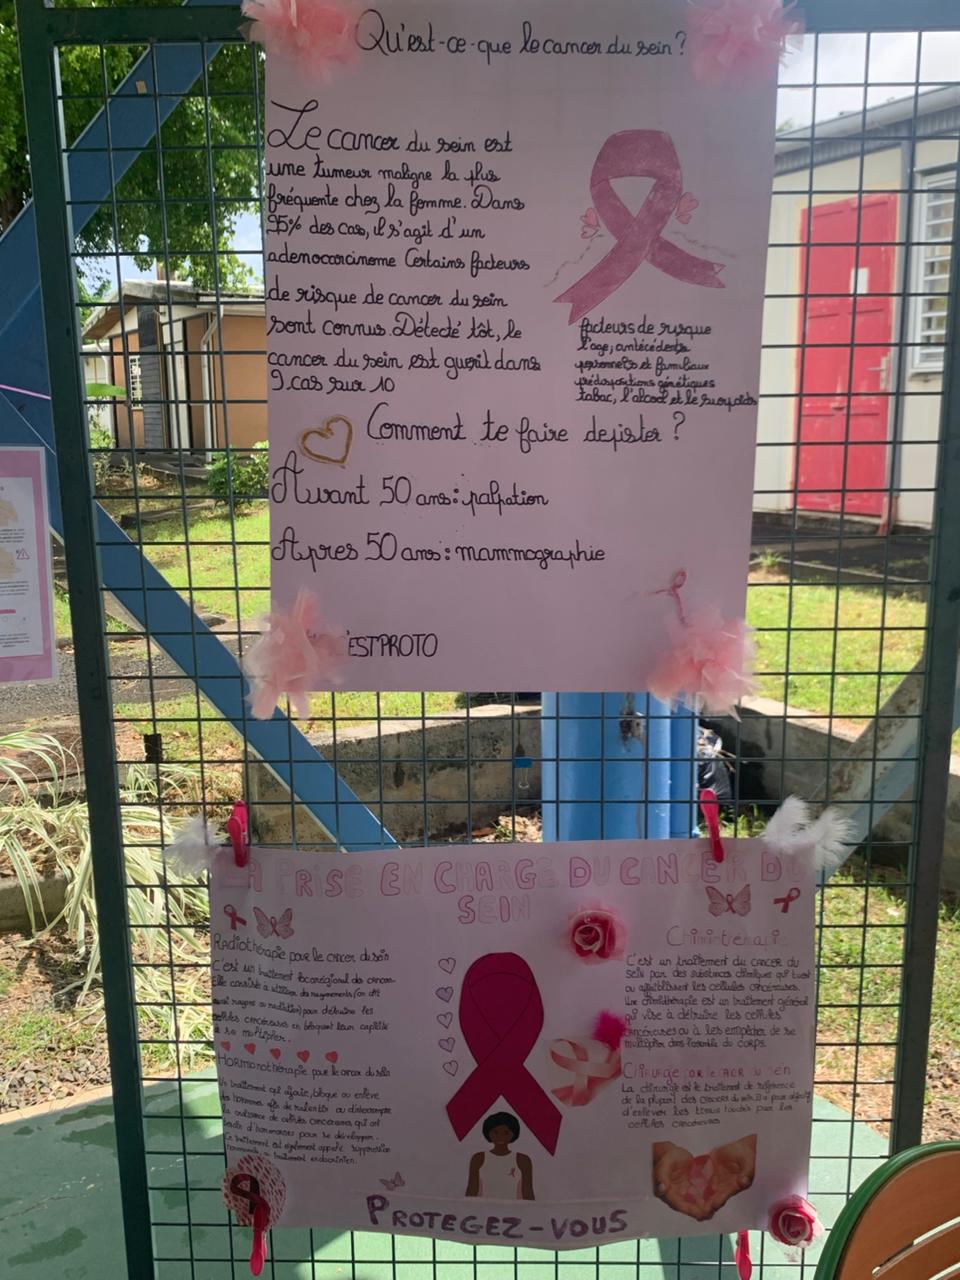 Qu'est-ce-que le cancer du sein ?
Le cancer du sein est
une tumeur maligne la plus
fréquente chez la femme. Dans
95% des cas, il s'agit d'un
adenocarcinome Certains facteurs
de risque de cancer du sein
sont connus. Détecté tôt, le
cancer du sein est guerit dans
9 cas sur 10
facteurs de risque
l'age, antécédents
personnels et familiaux
prédispositions génétiques
tabac, l'alcool et le surpoids
Comment te faire depister ?
Avant 50 ans : palpation
Apres 50 ans : mammographie
'ESTPROTO
LA PRISE EN CHARGE DU CANCER DU
SEIN
Radiothérapie pour le cancer du sein
C'est un traitement locorégional du cancer.
Elle consiste à utiliser des rayonnements (on dit
aussi rayons ou radiation) pour détruire les
cellules cancéreuses en bloquant leur capacité
à se multiplier.
Hormonothérapie pour le cancer du sein
Un traitement qui ajoute, bloque ou enlève
des hormones afin de ralentir ou d'interrompre
la croissance de cellules cancéreuses qui ont
besoin d'hormones pour se développer.
Ce traitement est également appelé suppression
hormonale ou traitement endocrinien.
Chimiothérapie
C'est un traitement du cancer du
sein par des substances chimiques qui tuent
ou affaiblissent les cellules cancéreuses.
Une chimiothérapie est un traitement général
qui vise à détruire les cellules
cancéreuses ou à les empêcher de se
multiplier dans l'ensemble du corps.
Chirurgie
La chirurgie est le traitement de référence
de la plupart des cancers du sein. Il a pour objectif
d'enlever les tissus touchés par les
cellules cancéreuses
PROTEGEZ-VOUS